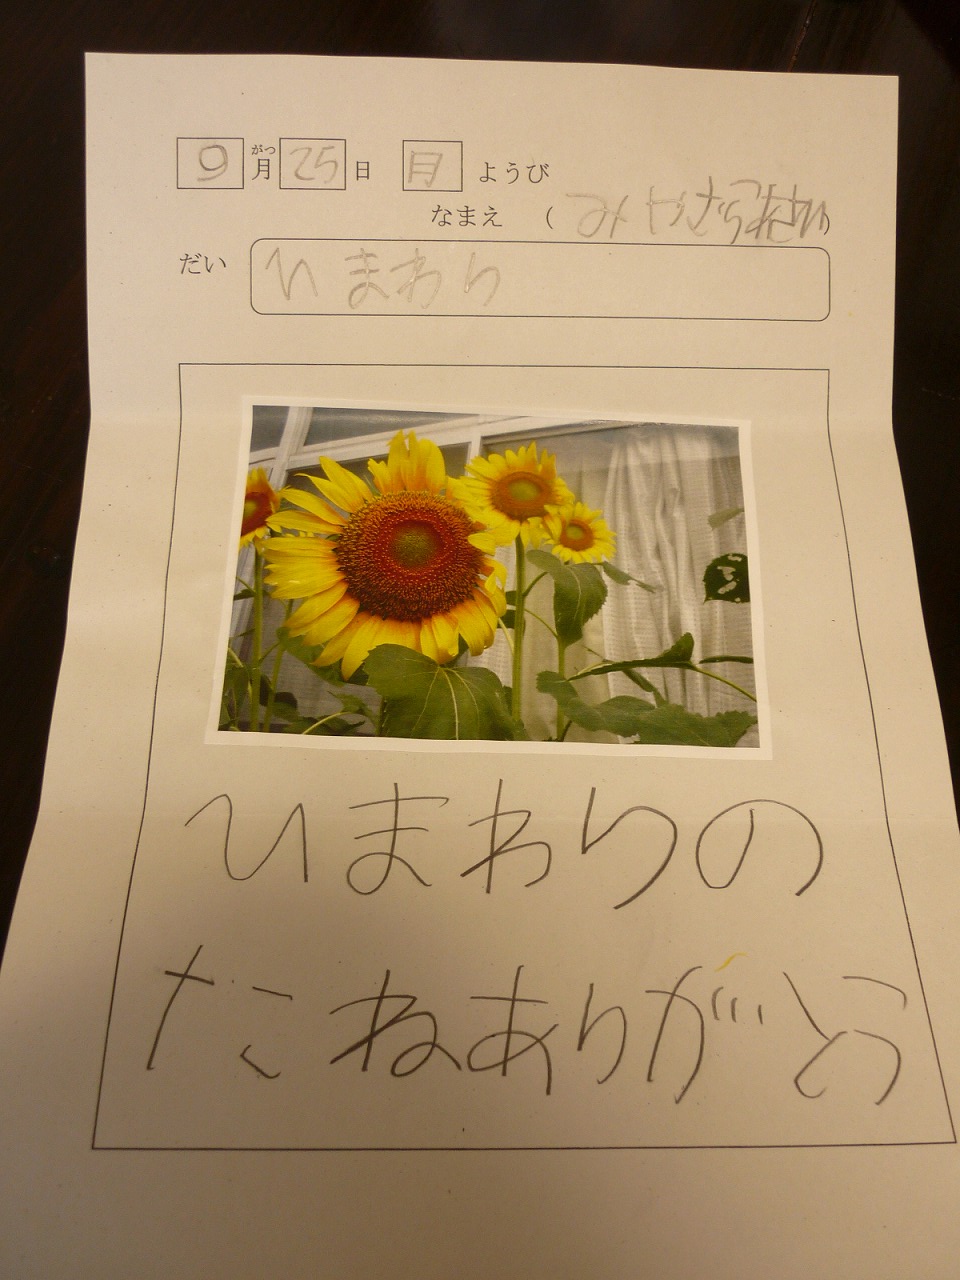 9月25日 月ようび
がつ
なまえ（みやざき
だい ひまわり
ひまわりの
たねありがとう